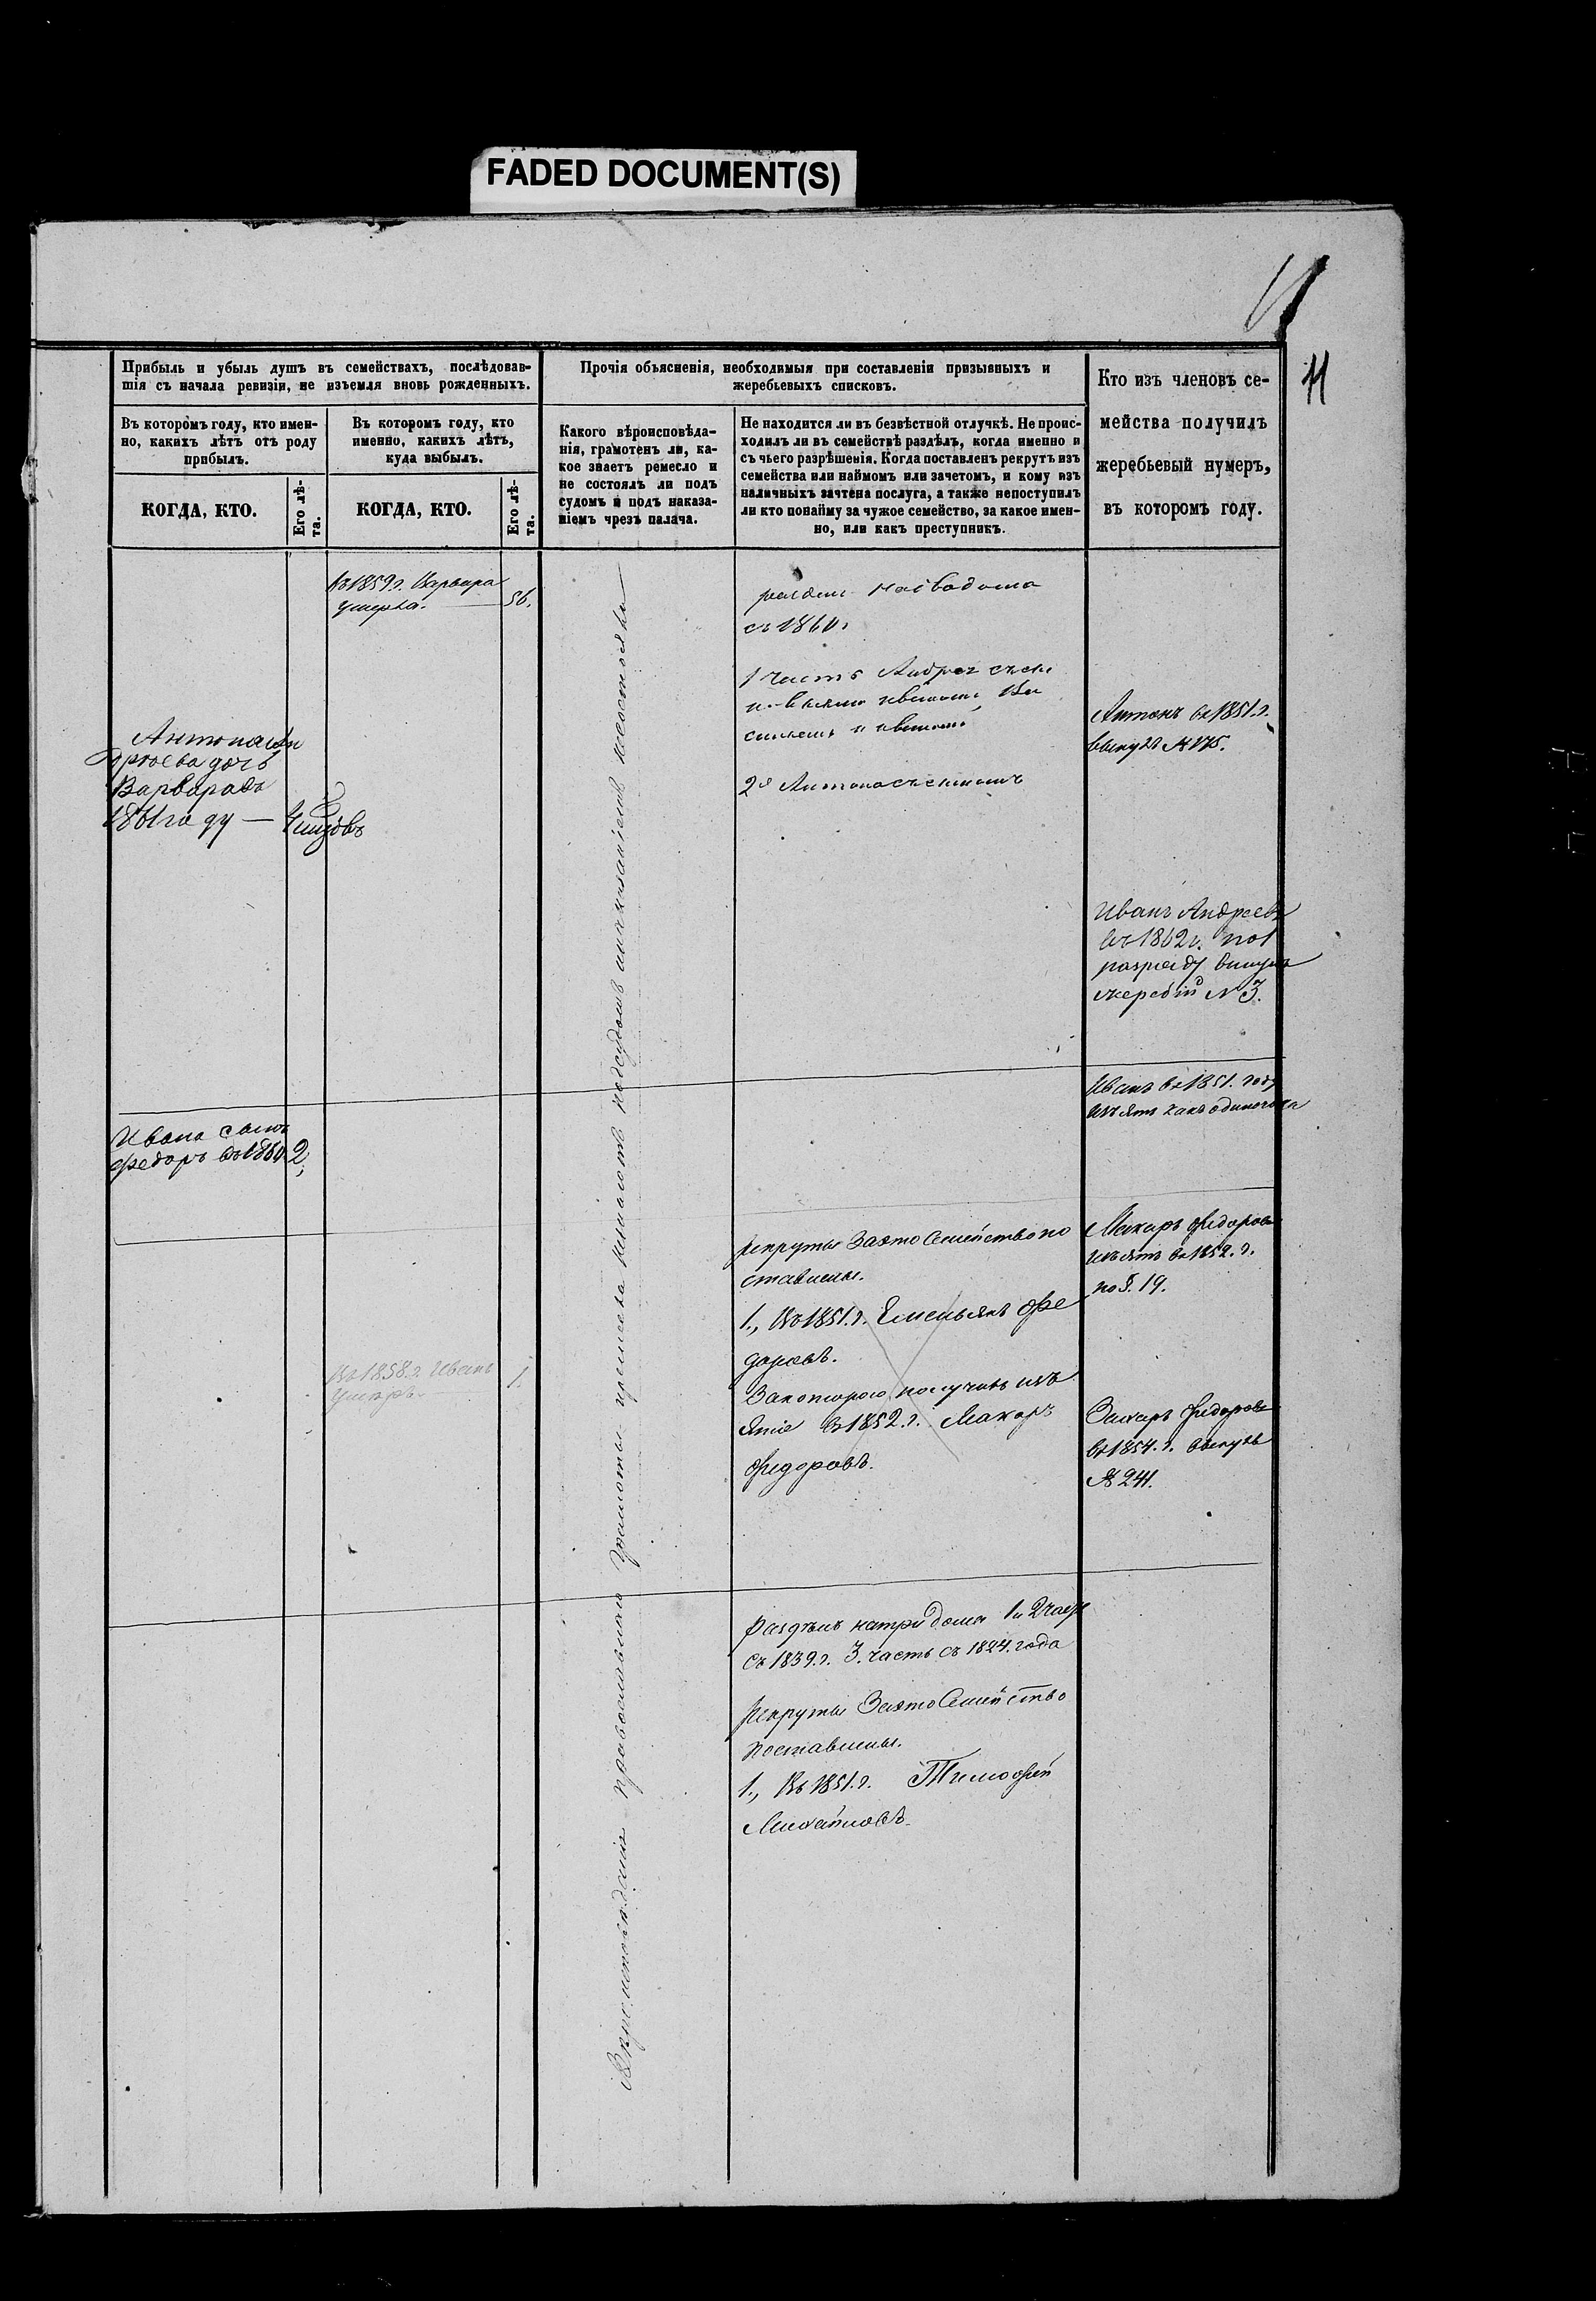 FADED DOCUMENT(S)
11
Прибыль и убыль душъ въ семействахъ, послѣдовав-
шія съ начала ревизіи, не изъемля вновь рожденныхъ.
Въ которомъ году, кто имен-
но, какихъ лѣтъ отъ роду
прибылъ.
КОГДА, КТО.
Его лѣ-
та.
Въ которомъ году, кто
именно, какихъ лѣтъ,
куда выбылъ.
КОГДА, КТО.
Его лѣ-
та.
Прочія объясненія, необходимыя при составленіи призывныхъ и
жеребьевыхъ списковъ.
Какого вѣроисповѣда-
нія, грамотенъ ли, ка-
кое знаетъ ремесло и
не состоялъ ли подъ
судомъ и подъ наказа-
ніемъ чрезъ палача.
Не находится ли въ безвѣстной отлучкѣ. Не проис-
ходилъ ли въ семействѣ раздѣлъ, когда именно и
съ чьего разрѣшенія. Когда поставленъ рекрутъ изъ
семейства или наймомъ или зачетомъ, и кому изъ
наличныхъ зачтена послуга, а также непоступилъ
ли кто понайму за чужое семейство, за какое имен-
но, или какъ преступникъ.
Кто изъ членовъ се-
мейства получилъ
жеребьевый нумеръ,
въ которомъ году.
Въ 1859 г. Варвара
умерла. 56.
съ 1860 г
1 часть Андрей
2я Антона съ сыномъ
Антонъ въ 1851. г.
вынулъ № 175.
Антона Ан
дреева дочь
Варвара въ
1861 году —
Иванъ Андреевъ
въ 1862 г. по 1
разряду вынулъ
жеребій № 3.
Иванъ въ 1851. году
изъятъ какъ одиночка
Ивана сынъ
Федоръ въ 1860 2,
Рекруты За это Семейство по
ставлены.
1., Въ 1851. г. Емельянъ Фе
доровъ.
За котораго получилъ изъ
ятіе въ 1852. г. Макаръ
Федоровъ.
Макаръ Федоровъ
изъятъ въ 1852. г.
по §. 19.
Въ 1858. г. Иванъ
умеръ. 1.
Захаръ Федоровъ
въ 1854. г. вынулъ
№ 241.
Раздѣлъ на три дома 1 и 2 часть
съ 1839. г. 3. часть съ 1824. года
Рекруты За это Семейство
поставлены.
1., Въ 1851. г. Тимофей
Михайловъ.
Вѣроисповѣданія православнаго грамоты и ремесла незнаютъ подсудомъ и наказаніемъ несостояли